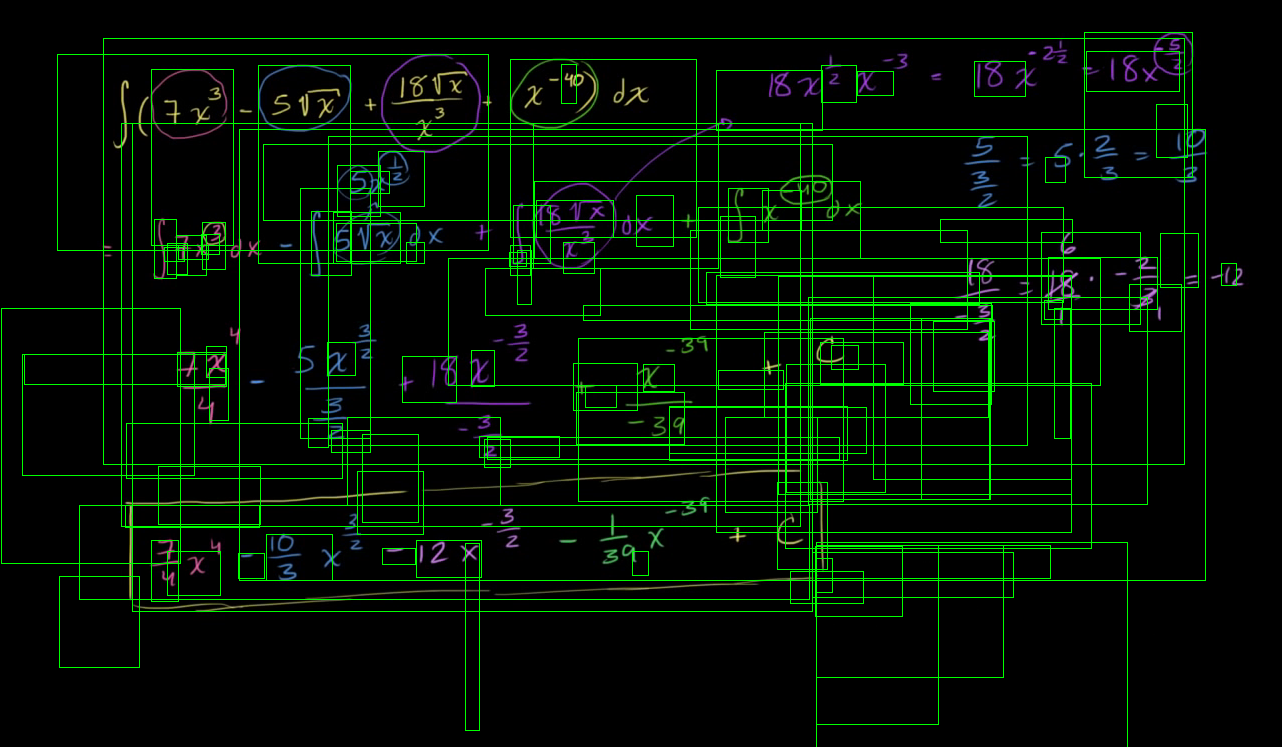 ∫(7x³ - 5√x + 18√x/x³ + x⁻⁴⁰) dx
18x^(1/2) x⁻³ = 18x^(-2 1/2) = 18x^(-5/2)
5x^(1/2)
5/(3/2) = 5 · 2/3 = 10/3
= ∫7x³ dx - ∫5√x dx + ∫18√x/x³ dx + ∫x⁻⁴⁰ dx
18/(-3/2) = 18 · -2/3 = -12
6
1 1
7x⁴/4 - 5x^(3/2)/(3/2) + 18x^(-3/2)/(-3/2) + x⁻³⁹/-39 + C
7/4 x⁴ - 10/3 x^(3/2) - 12x^(-3/2) - 1/39 x⁻³⁹ + C